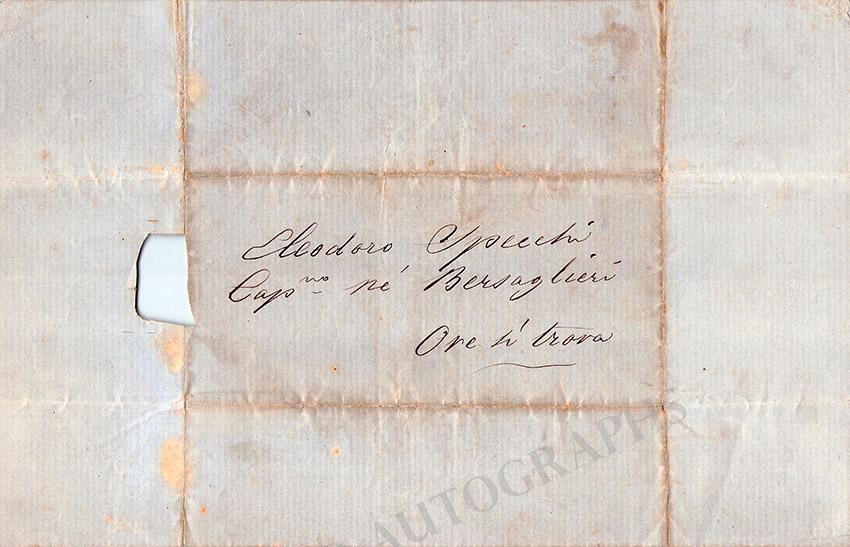 Eleodoro Specchi
Cap.no né Bersaglieri
Ove si trova
AUTOGRAPHS